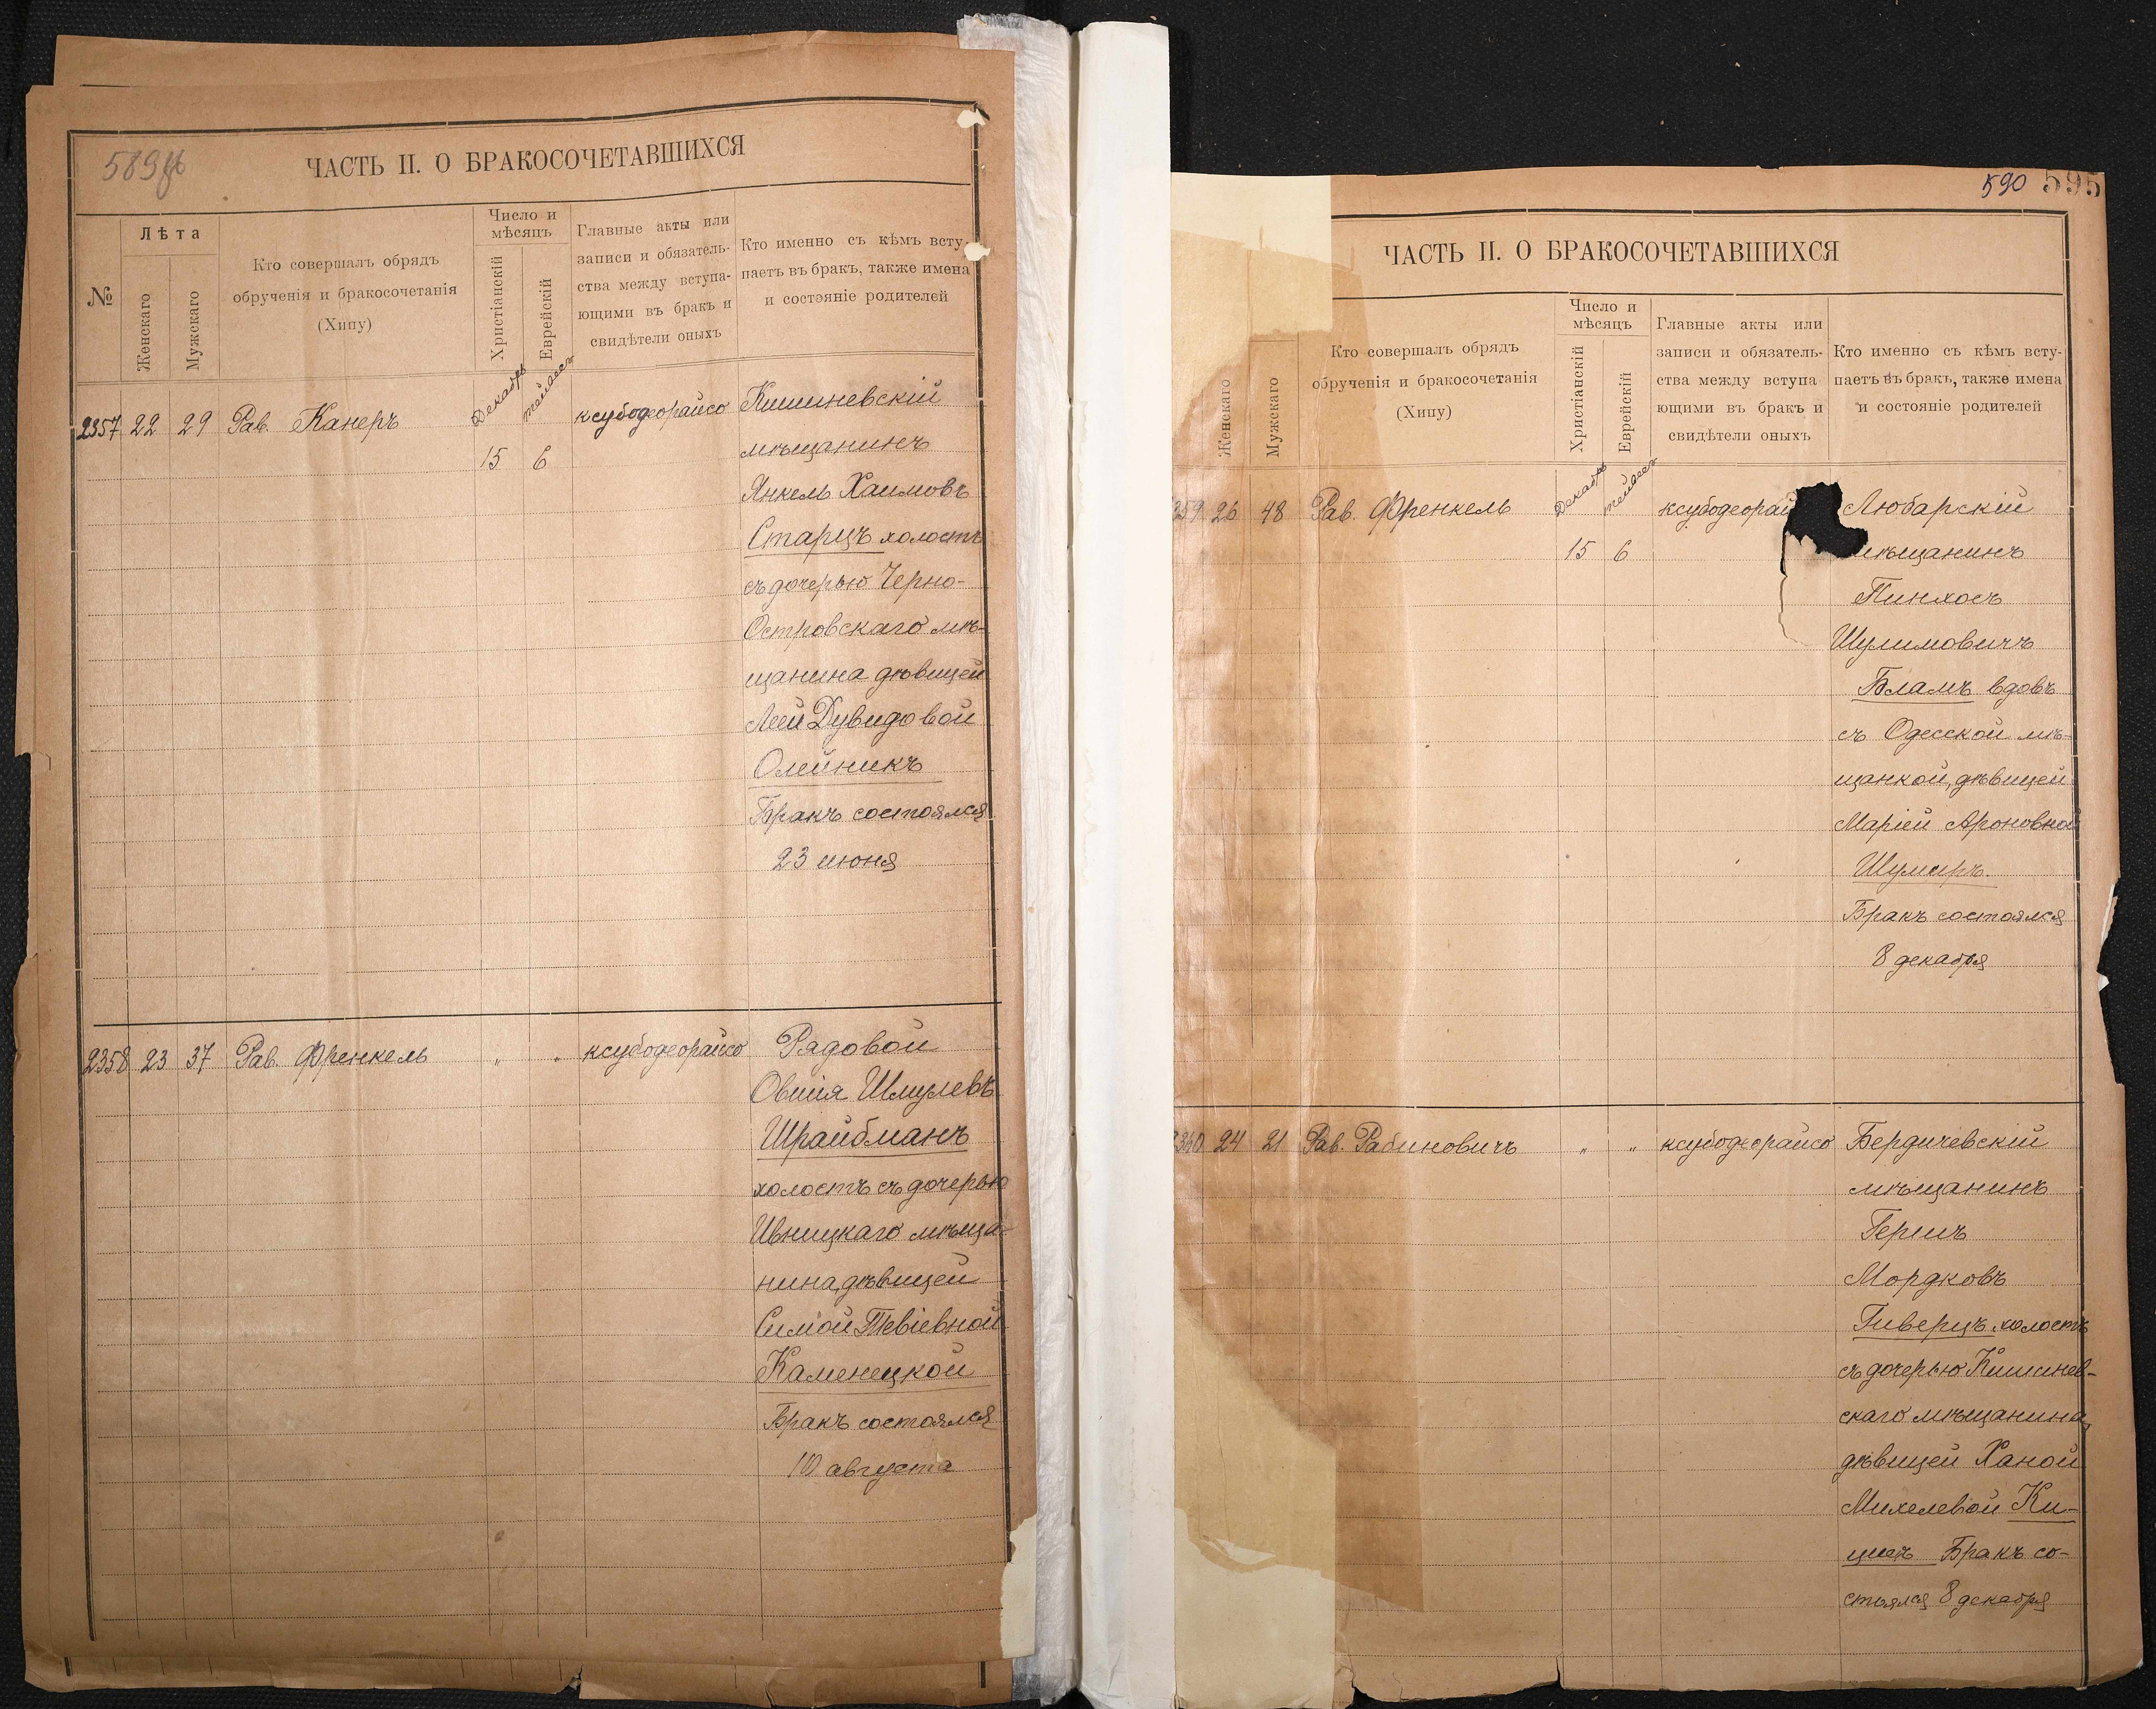 ЧАСТЬ II. О БРАКОСОЧЕТАВШИХСЯ
№
Лѣта
Женскаго
Мужскаго
Кто совершалъ обрядъ
обрученія и бракосочетанія
(Хипу)
Число и
мѣсяцъ
Христіанскій
Еврейскій
Главные акты или
записи и обязатель-
ства между вступа-
ющими въ бракъ и
свидѣтели оныхъ
Кто именно съ кѣмъ всту-
паетъ въ бракъ, также имена
и состояніе родителей
2357 22 29 Рав. Канеръ
Декабрь
15 6
ксубодеорайсо
Кишиневскій
мѣщанинъ
Янкель Хаимовъ
Старецъ холостъ
съ дочерью Черно-
Островскаго мѣ-
щанина дѣвицей
Леей Дувидовой
Олейникъ
Бракъ состоялся
23 июня
2358 23 37 Рав. Френкель " " ксубодеорайсо
Рядовой
Овшія Шмулевъ
Шрайбманъ
холостъ съ дочерью
Ивницкаго мѣща-
нина, дѣвицей
Симой Тевіевной
Каменецкой
Бракъ состоялся
10 августа
590 595
ЧАСТЬ II. О БРАКОСОЧЕТАВШИХСЯ
Женскаго
Мужскаго
Кто совершалъ обрядъ
обрученія и бракосочетанія
(Хипу)
Число и
мѣсяцъ
Христіанскій
Еврейскій
Главные акты или
записи и обязатель-
ства между вступа
ющими въ бракъ и
свидѣтели оныхъ
Кто именно съ кѣмъ всту-
паетъ въ бракъ, также имена
и состояніе родителей
359 26 48 Рав. Френкель
Декабрь
15 6
ксубодеорай
Любарскій
мѣщанинъ
Пинхосъ
Шулимовичъ
Бламъ вдовъ
съ Одесской мѣ-
щанкой, дѣвицей
Маріей Ароновной
Шумеръ.
Бракъ состоялся
8 декабря
360 24 21 Рав. Рабиновичъ " " ксубодеорайсо
Бердичевскій
мѣщанинъ
Гершъ
Мордковъ
Гиверцъ холостъ
съ дочерью Кишинев-
скаго мѣщанина,
дѣвицей Ханой
Михелевой Ки-
цисъ Бракъ со-
стоялся 8 декабря